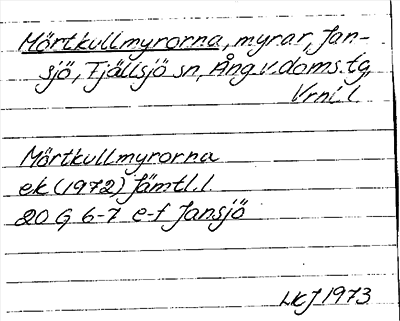 Mörtkullmyrorna, myrar, Jan-
sjö, Tjällsjö sn, Ång. v. doms. tg,
Vrnl. l.
Mörtkullmyrorna
ek (1972) Jämtl. l.
20 G 6-7 e-f Jansjö
LKJ 1973